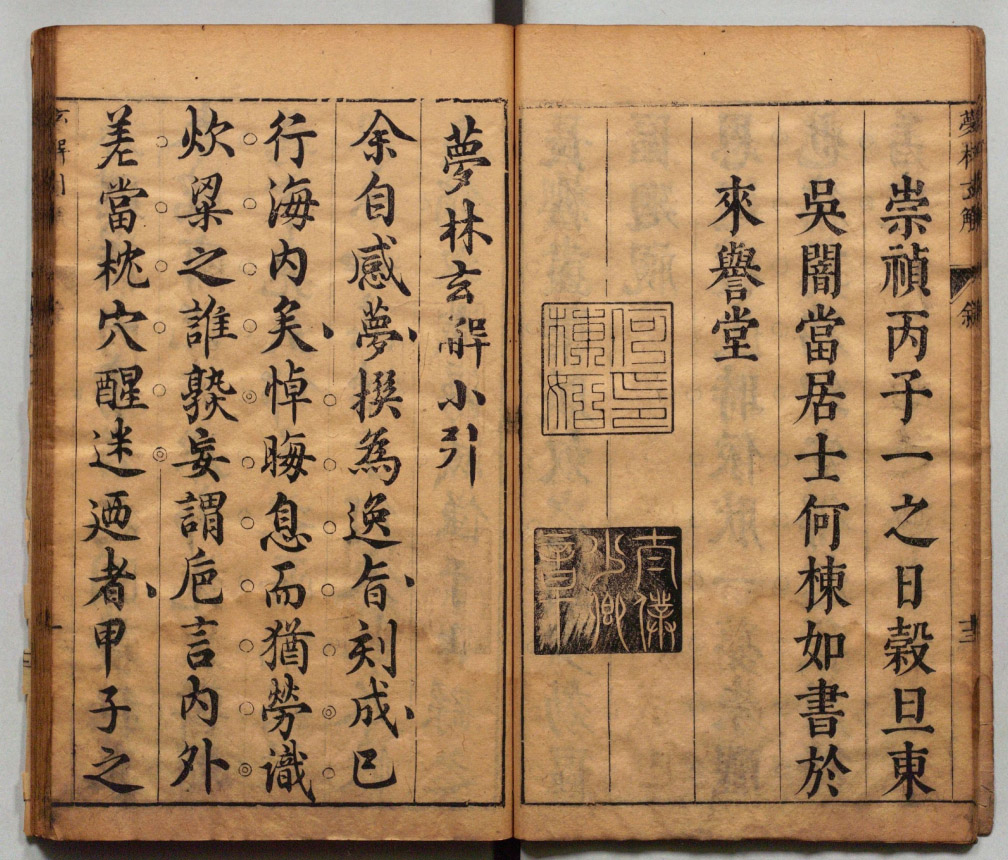 夢林玄解
崇禎丙子一之日穀旦東
吳闇當居士何棟如書於
來譽堂
何印棟如
太僕少卿章
夢林玄解小引
余自感夢撰為逸旨刻成已
行海内矣悼晦息而猶勞識
炊粱之誰孰妄謂巵言内外
差當枕穴醒迷迺者甲子之
玄解引